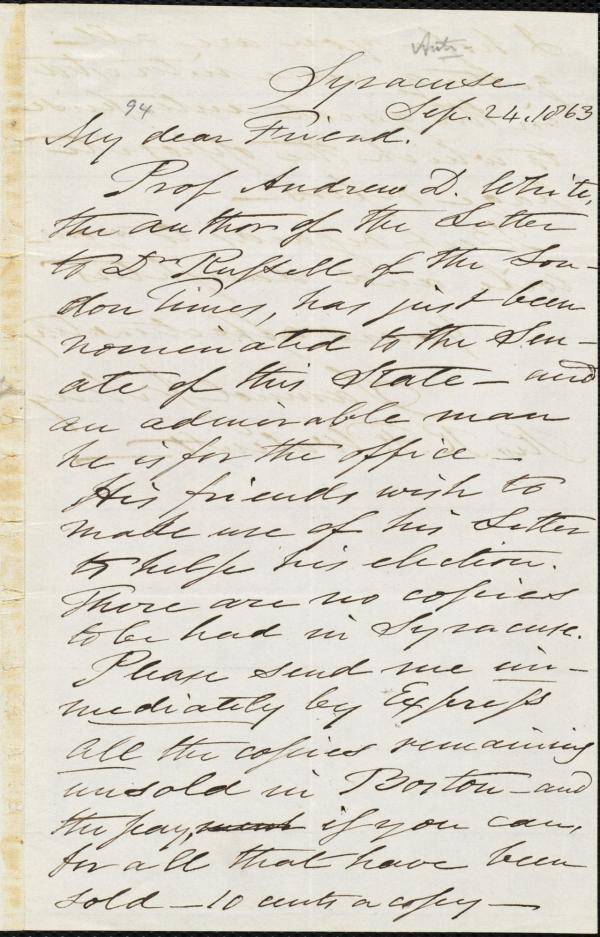 Syracuse
Sep. 24, 1863
94
My dear Friend.
Prof Andrew D. White,
the author of the Letter
to Dr Russell of the Lon-
don Times, has just been
nominated to the Sen-
ate of this State - and
an admirable man
he is for the office -
His friends wish to
make use of his Letter
to help his election.
There are no copies
to be had in Syracuse.
Please send me im-
mediately by Express
all the copies remaining
unsold in Boston - and
the pay, ment if you can,
for all that have been
sold - 10 cents a copy -